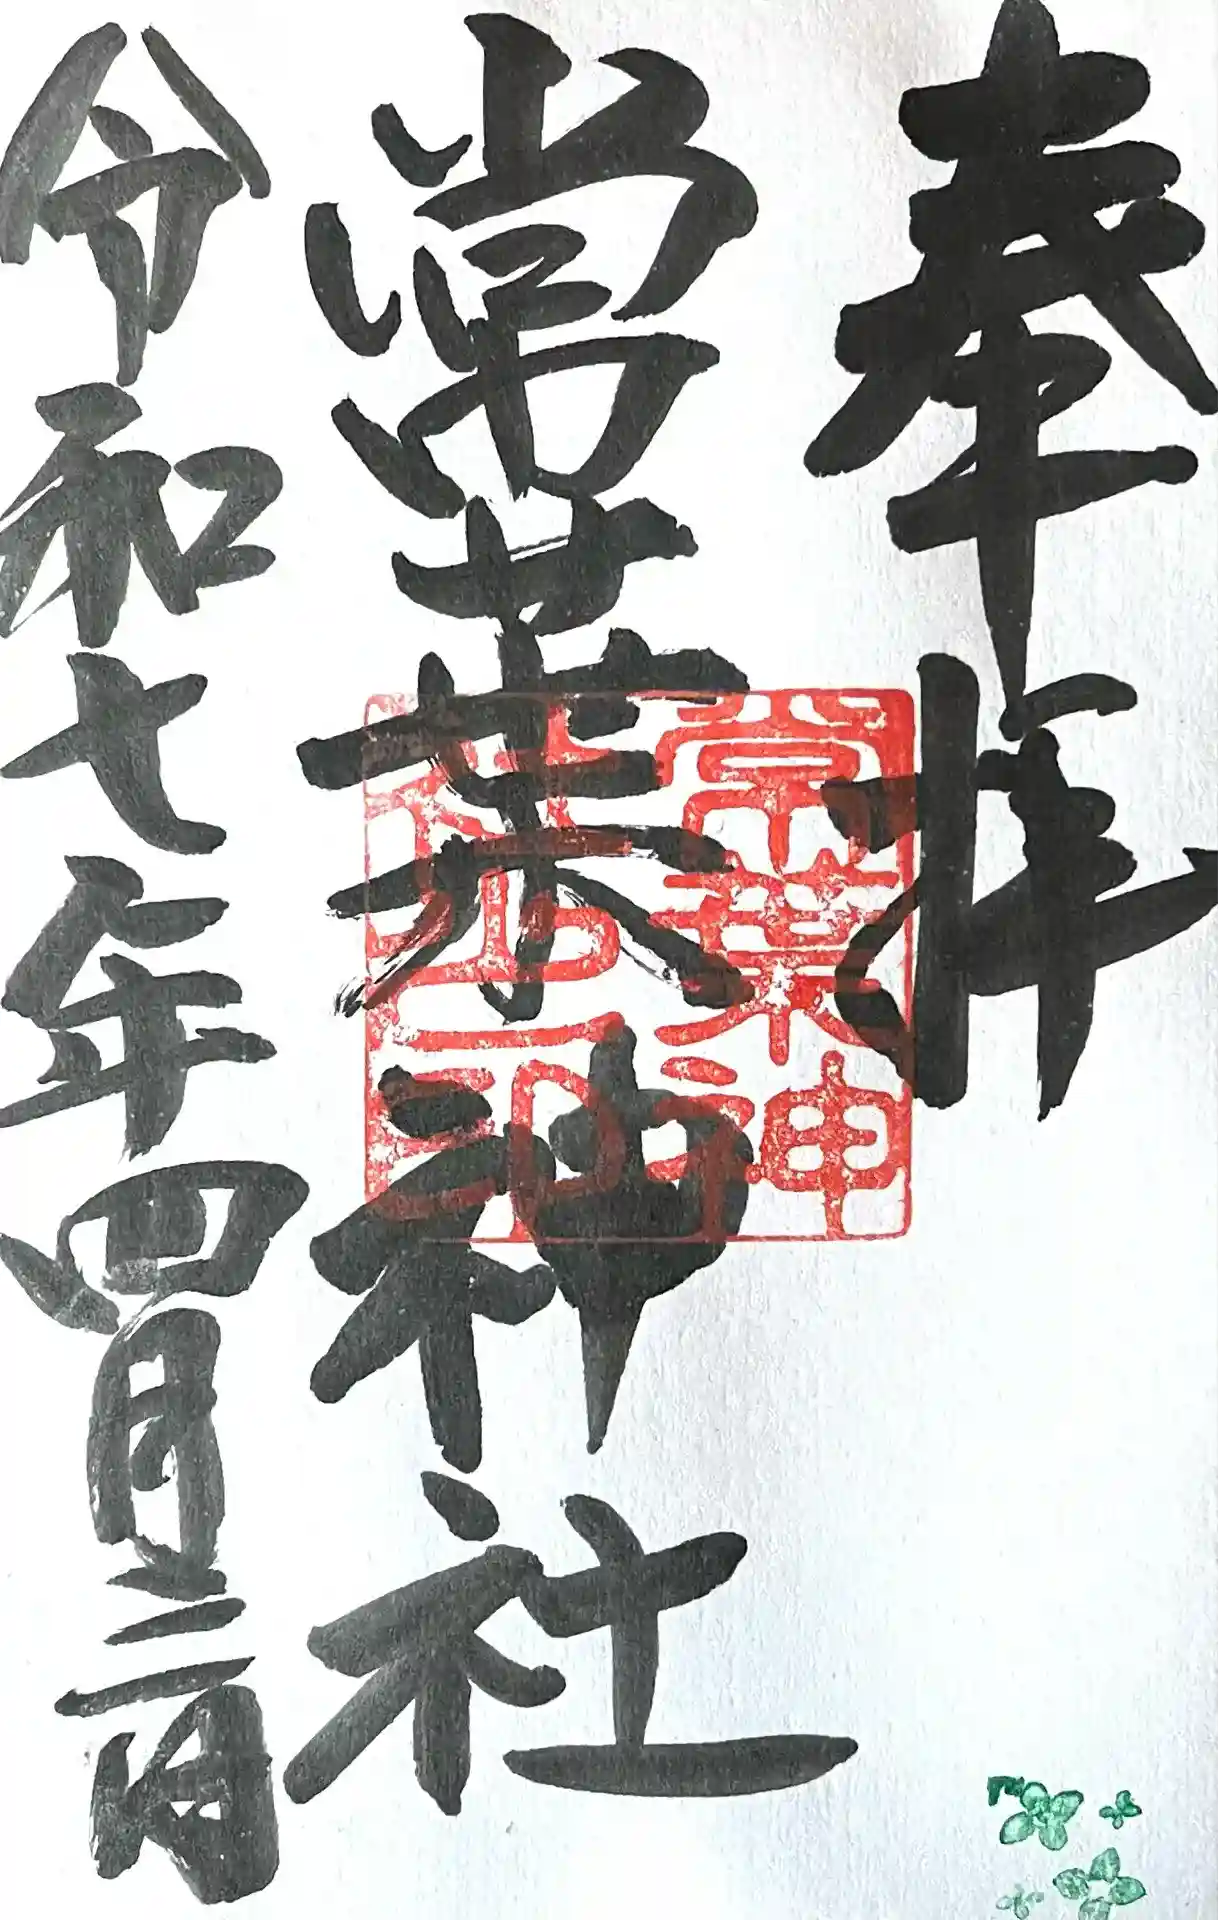 奉拝
常葉神社
常葉神
社之印
令和七年四月三日